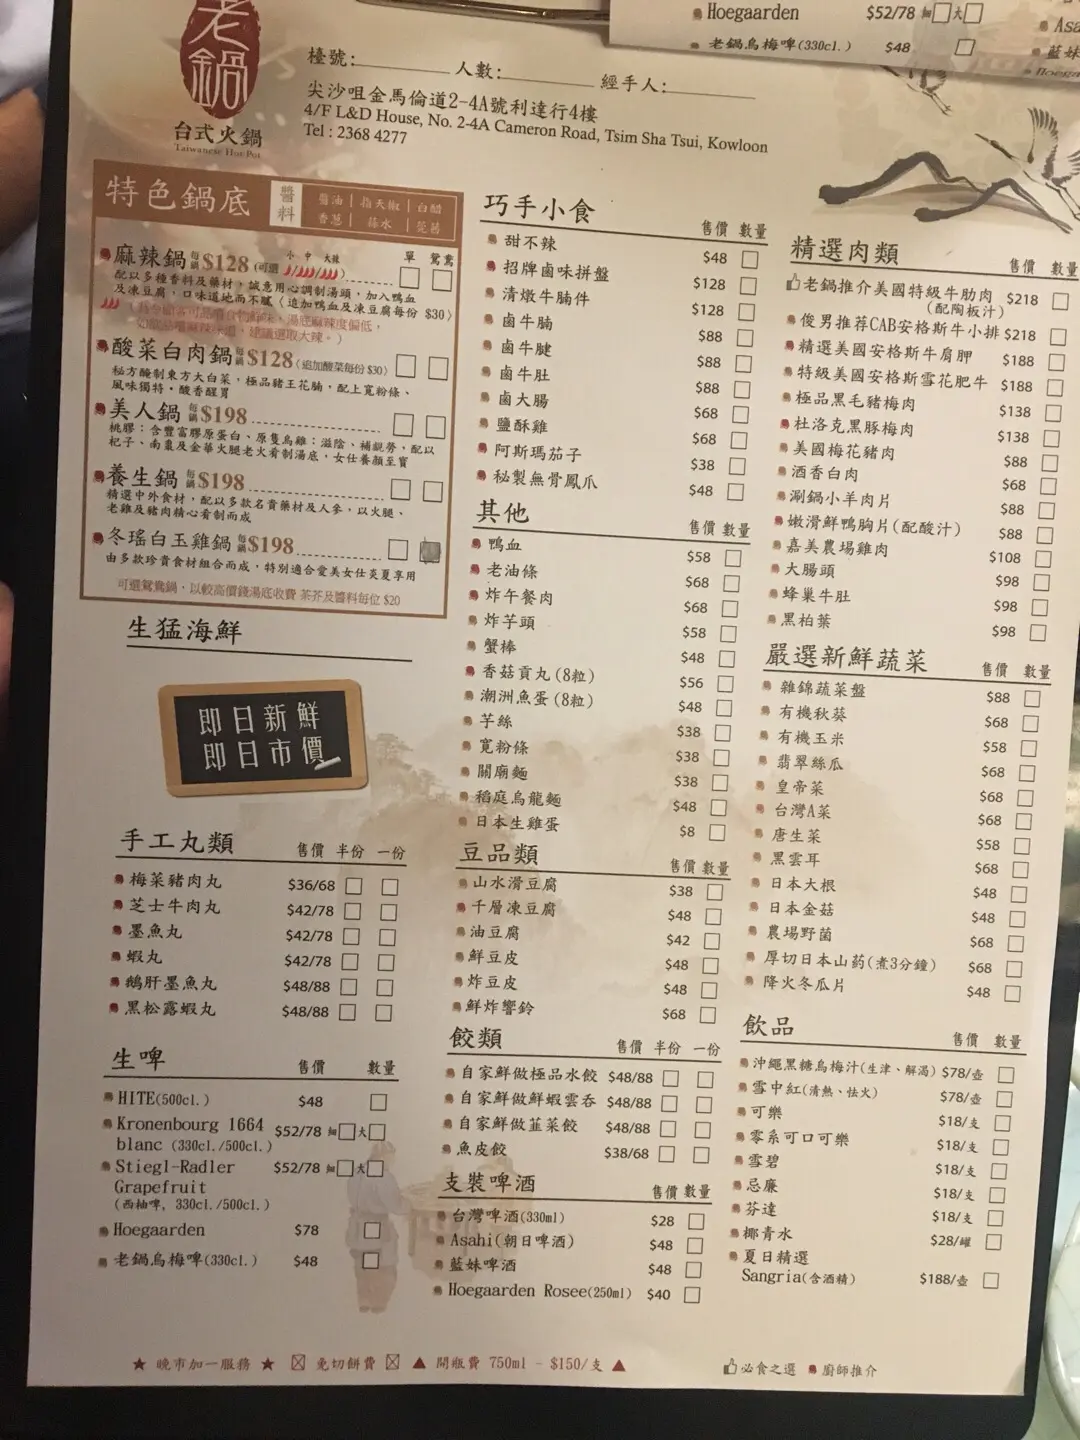 Hoegaarden $52/78 細 大
老鍋烏梅啤(330cl.) $48
老鍋
台式火鍋
Taiwanese Hot Pot
檯號: 人數: 經手人:
尖沙咀金馬倫道2-4A號利達行4樓
4/F L&D House, No. 2-4A Cameron Road, Tsim Sha Tsui, Kowloon
Tel : 2368 4277
特色鍋底
醬料
醬油 | 指天椒 | 白醋
香蔥 | 蒜水 | 芫茜
小 中 大辣 單 鴛鴦
麻辣鍋 每鍋 $128 (可選 / / )
配以多種香料及藥材，誠意用心調制湯頭，加入鴨血
及凍豆腐，口味道地而不膩〈追加鴨血及凍豆腐每份 $30〉
湯底麻辣度偏低，
建議選取大辣。)
酸菜白肉鍋 每鍋 $128 〈追加酸菜每份 $30〉
秘方醃制東方大白菜，極品豬王花腩，配上寬粉條、
風味獨特，酸香醒胃
美人鍋 每鍋 $198
桃膠：含豐富膠原蛋白、原隻烏雞：滋陰、補銳勞、配以
杞子、南棗及金華火腿老火肴制湯底，女仕養顏至寶
養生鍋 每鍋 $198
精選中外食材，配以多款名貴藥材及人參，以火腿、
老雞及豬肉精心肴制而成
冬瑤白玉雞鍋 每鍋 $198
由多款珍貴食材組合而成，特別適合愛美女仕炎夏享用
可選鴛鴦鍋，以較高價錢湯底收費 茶芥及醬料每位 $20
生猛海鮮
即日新鮮
即日市價
手工丸類 售價 半份 一份
梅菜豬肉丸 $36/68
芝士牛肉丸 $42/78
墨魚丸 $42/78
蝦丸 $42/78
鵝肝墨魚丸 $48/88
黑松露蝦丸 $48/88
生啤 售價 數量
HITE(500cl.) $48
Kronenbourg 1664 $52/78 細 大
blanc (330cl./500cl.)
Stiegl-Radler $52/78 細 大
Grapefruit
(西柚啤, 330cl./500cl.)
Hoegaarden $78
老鍋烏梅啤(330cl.) $48
巧手小食 售價 數量
甜不辣 $48
招牌鹵味拼盤 $128
清燉牛腩件 $128
鹵牛腩 $88
鹵牛腱 $88
鹵牛肚 $88
鹵大腸 $68
鹽酥雞 $68
阿斯瑪茄子 $38
秘製無骨鳳爪 $48
其他 售價 數量
鴨血 $58
老油條 $68
炸午餐肉 $68
炸芋頭 $58
蟹棒 $48
香菇貢丸(8粒) $56
潮洲魚蛋(8粒) $48
芋絲 $38
寬粉條 $38
關廟麵 $38
稻庭烏龍麵 $48
日本生雞蛋 $8
豆品類 售價 數量
山水滑豆腐 $38
千層凍豆腐 $48
油豆腐 $42
鮮豆皮 $48
炸豆皮 $48
鮮炸響鈴 $68
餃類 售價 半份 一份
自家鮮做極品水餃 $48/88
自家鮮做鮮蝦雲吞 $48/88
自家鮮做韮菜餃 $48/88
魚皮餃 $38/68
支裝啤酒 售價 數量
台灣啤酒(330ml) $28
Asahi(朝日啤酒) $48
藍妹啤酒 $48
Hoegaarden Rosee(250ml) $40
精選肉類 售價 數量
老鍋推介美國特級牛肋肉 $218
(配陶板汁)
俊男推荐CAB安格斯牛小排 $218
精選美國安格斯牛肩胛 $188
特級美國安格斯雪花肥牛 $188
極品黑毛豬梅肉 $138
杜洛克黑豚梅肉 $138
美國梅花豬肉 $88
酒香白肉 $68
涮鍋小羊肉片 $88
嫩滑鮮鴨胸片(配酸汁) $88
嘉美農場雞肉 $108
大腸頭 $98
蜂巢牛肚 $98
黑柏葉 $98
嚴選新鮮蔬菜 售價 數量
雜錦蔬菜盤 $88
有機秋葵 $68
有機玉米 $58
翡翠絲瓜 $68
皇帝菜 $68
台灣A菜 $68
唐生菜 $58
黑雲耳 $68
日本大根 $48
日本金菇 $48
農場野菌 $68
厚切日本山葯(煮3分鐘) $68
降火冬瓜片 $48
飲品 售價 數量
沖繩黑糖烏梅汁(生津、解渴) $78/壺
雪中紅(清熱、怯火) $78/壺
可樂 $18/支
零系可口可樂 $18/支
雪碧 $18/支
忌廉 $18/支
芬達 $18/支
椰青水 $28/罐
夏日精選
Sangria(含酒精) $188/壺
★ 晚市加一服務 ★ 免切餅費 ▲ 開瓶費 750ml - $150/支 ▲
必食之選 廚師推介